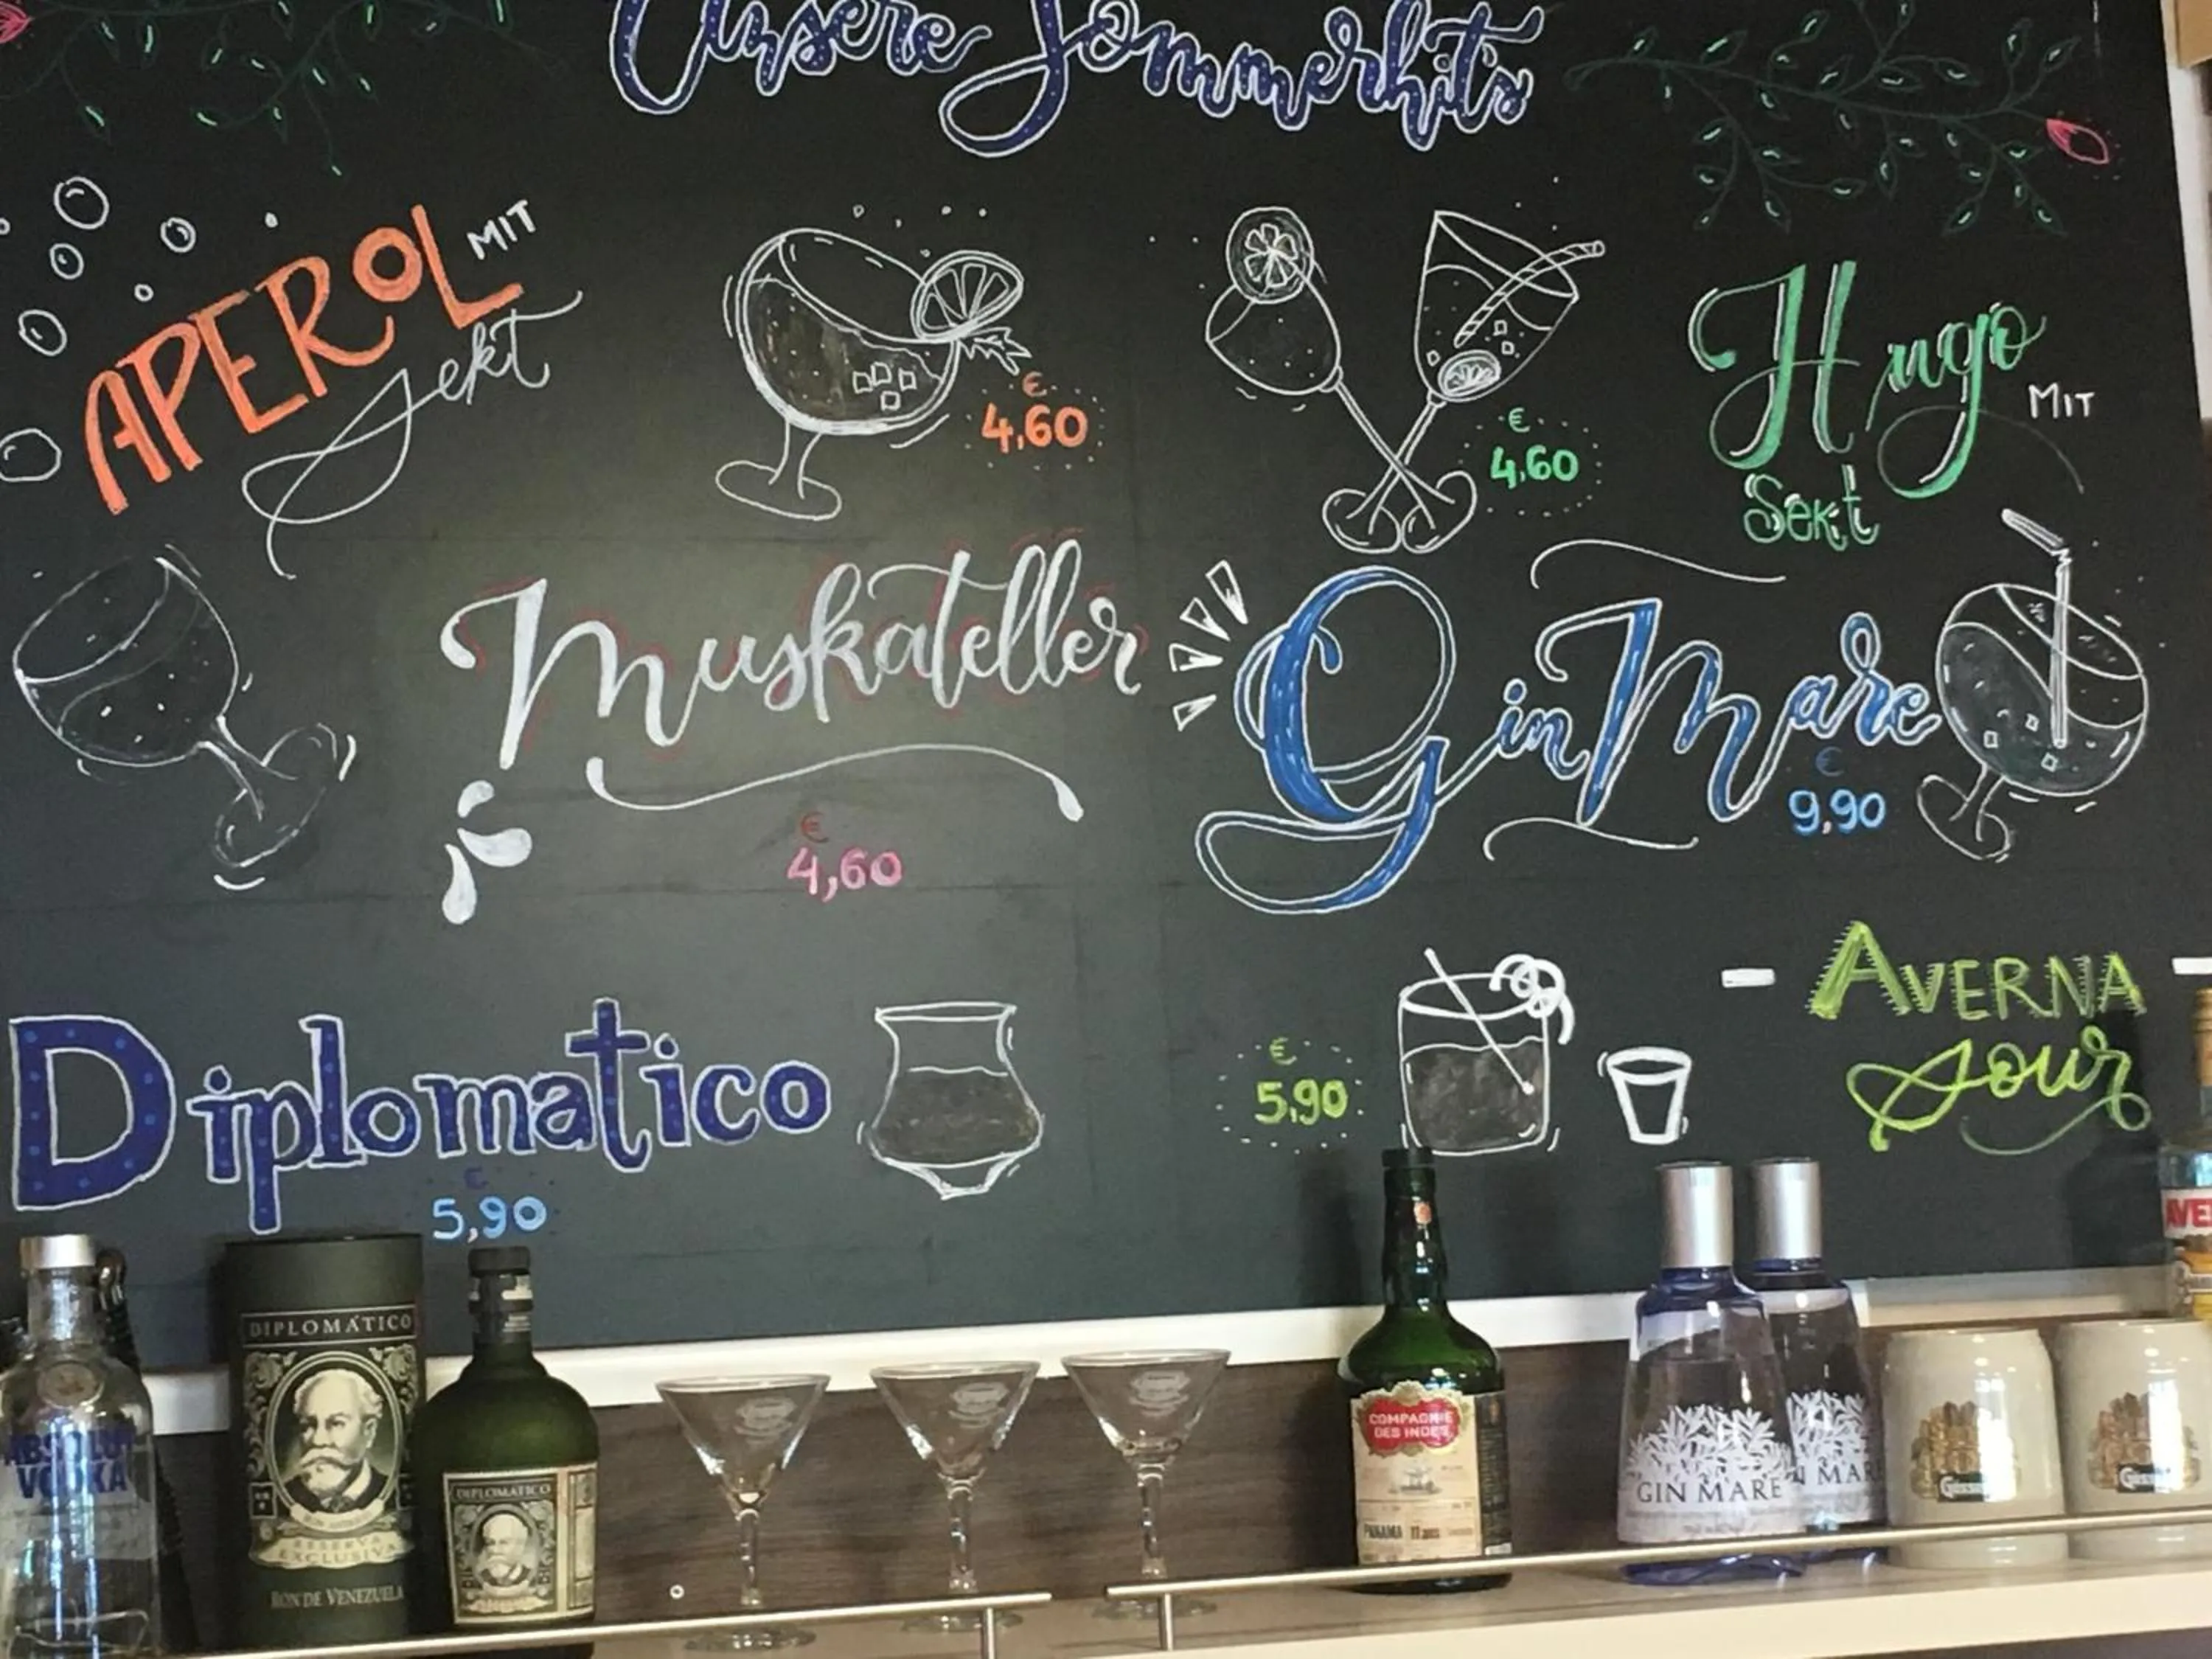 Unsere Sommerhit's
APEROL MIT
Sekt
€
4,60
Hugo
MIT
Sekt
€
4,60
Muskateller
€
4,60
Gin Mare
€
9,90
Diplomatico
€
5,90
AVERNA
Sour
€
5,90
ABSOLUT
VODKA
DIPLOMÁTICO
RESERVA
EXCLUSIVA
RON DE VENEZUELA
DIPLOMÁTICO
COMPAGNIE
DES INDES
PANAMA 11
GIN MARE
N MAR
AVE